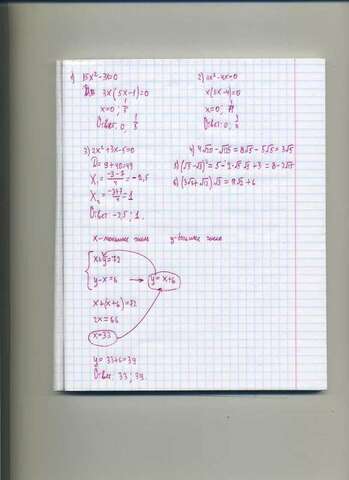 1) 15x²-3x=0
3x(5x-1)=0
x=0; 1/5
Ответ: 0; 1/5
x=0;
Ответ: 0;
2x²+3x-5=0
D= 9+40=49
X₁= (-3-7)/4 = -2,5
X₂= (-3+7)/4 = 1
Ответ: -2,5; 1.
4) 4√20 - √125 = 8√5 - 5√5 = 3√5
x-меньшее число y-большее число
x+y=72
y-x=6 → y=x+6
x+(x+6)=72
2x=66
x=33
y= 33+6=39
Ответ: 33; 39.